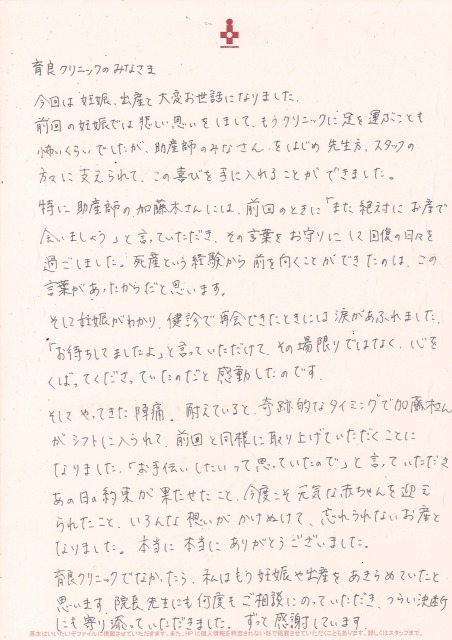 育良クリニックのみなさま
今回は妊娠、出産と大変お世話になりました。
前回の妊娠では悲しい思いをしまして、もうクリニックに足を運ぶことも
怖いくらいでしたが、助産師のみなさんをはじめ先生方、スタッフの
方々に支えられて、この喜びを手に入れることができました。
特に助産師の加藤木さんには、前回のときに「また絶対にお産で
会いましょう」と言っていただき、その言葉をお守りにして回復の日々を
過ごしました。死産という経験から前を向くことができたのは、この
言葉があったからだと思います。
そして妊娠がわかり、健診で再会できたときには涙があふれました。
「お待ちしてましたよ」と言っていただけて、その場限りではなく、心を
くばってくださっていたのだと感動したのです。
そしてやってきた陣痛。耐えていると、奇跡的なタイミングで加藤木さん
がシフトに入られて、前回と同様に取り上げていただくことに
なりました。「お手伝いしたいって思っていたので」と言っていただき
あの日の約束が果たせたこと、今度こそ元気な赤ちゃんを迎え
られたこと、いろんな想いがかけぬけて、忘れられないお産と
なりました。本当に本当にありがとうございました。
育良クリニックでなかったら、私はもう妊娠や出産をあきらめていたと
思います。院長先生にも何度もご相談にのっていただき、つらい決断
にも寄り添っていただきました。ずっと感謝しています
原本はいいたいぞファイルに掲載させていただきます。また、HPに個人情報を特定されない形で掲載させていただくこともあります。詳しくはスタッフまで。